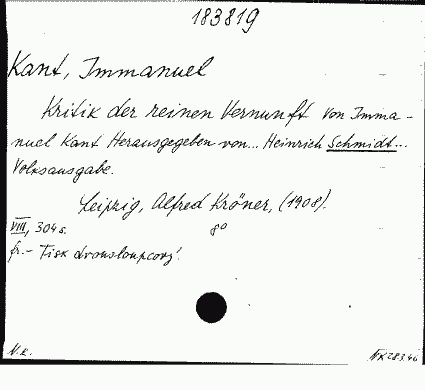 183819
Kant, Immanuel
Kritik der reinen Vernunft von Imma-
nuel Kant Herausgegeben von... Heinrich Schmidt...
Volksausgabe.
Leipzig, Alfred Kröner, (1908).
VIII, 304 s. 8°
fr.- Tisk dvousloupcový.
N.e.